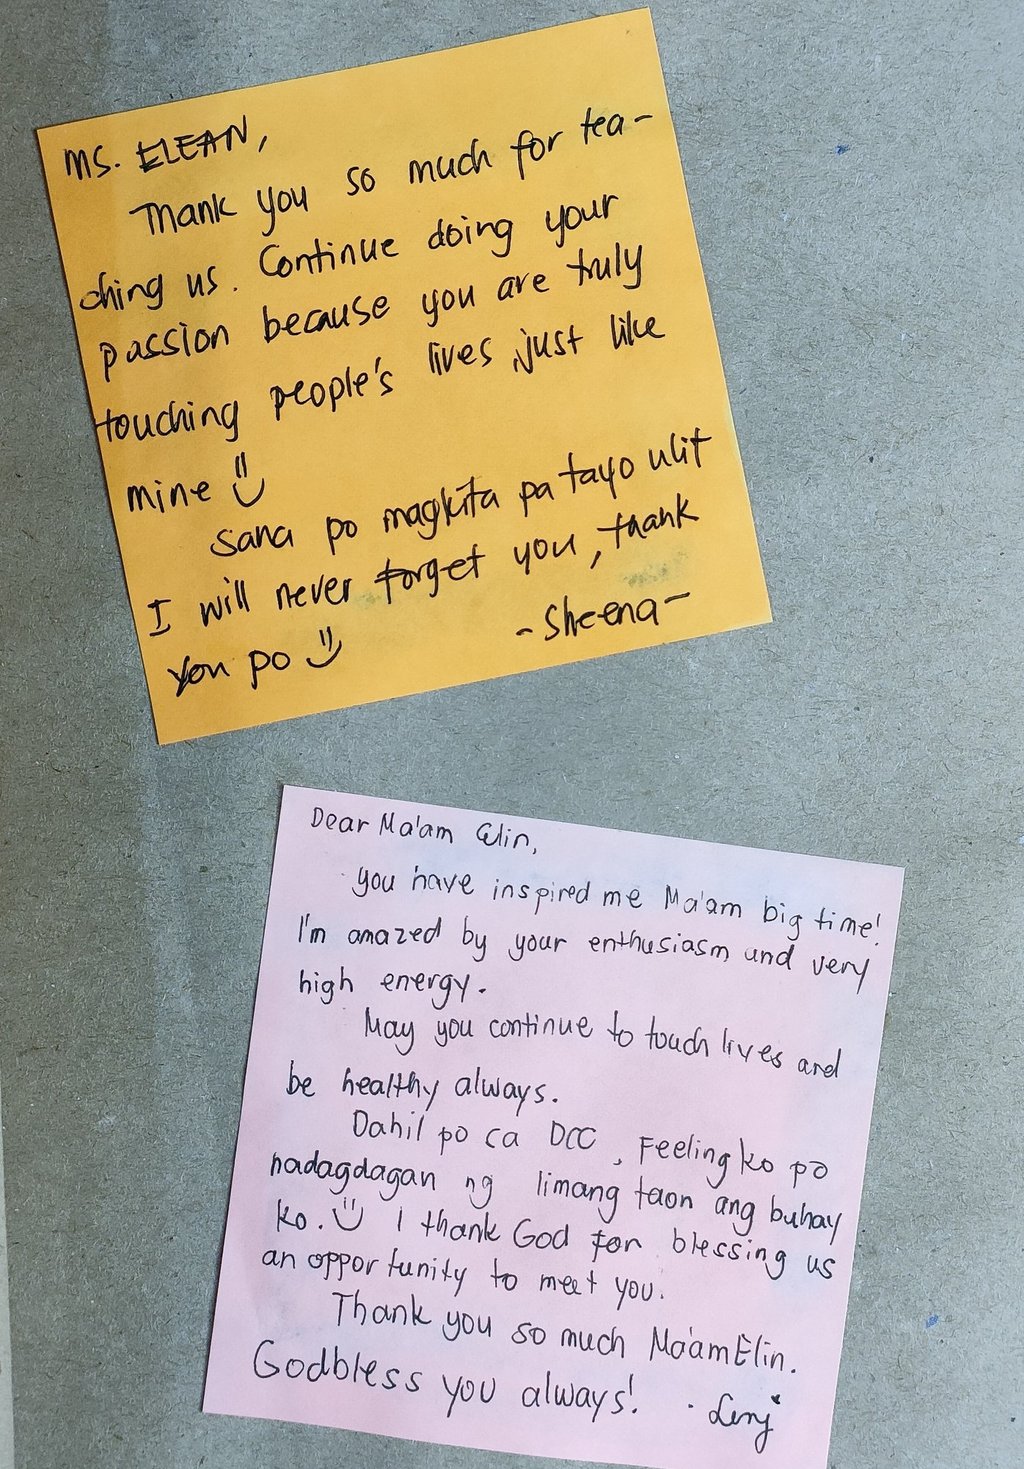 MS. ELEAN,
Thank you so much for tea-
ching us. Continue doing your
passion because you are truly
touching people's lives just like
mine
Sana po magkita pa tayo ulit
I will never forget you, thank
you po
- Sheena -
Dear Ma'am Elin,
you have inspired me Ma'am big time!
I'm amazed by your enthusiasm and very
high energy.
May you continue to touch lives and
be healthy always.
Dahil po sa DCC, Feeling ko po
nadagdagan ng limang taon ang buhay
ko. I thank God for blessing us
an opportunity to meet you.
Thank you so much Ma'am Elin.
Godbless you always!